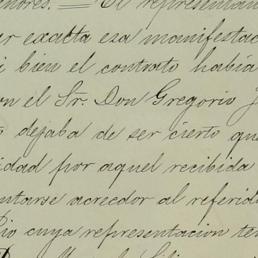 enores. = El representan
er exacta esa manifestac
i bien el contrato habia
on el Sr. Don Gregorio
dejaba de ser cierto que
idad por aquel recibida
ntarse acreedor al referid
io cuya representacion ten